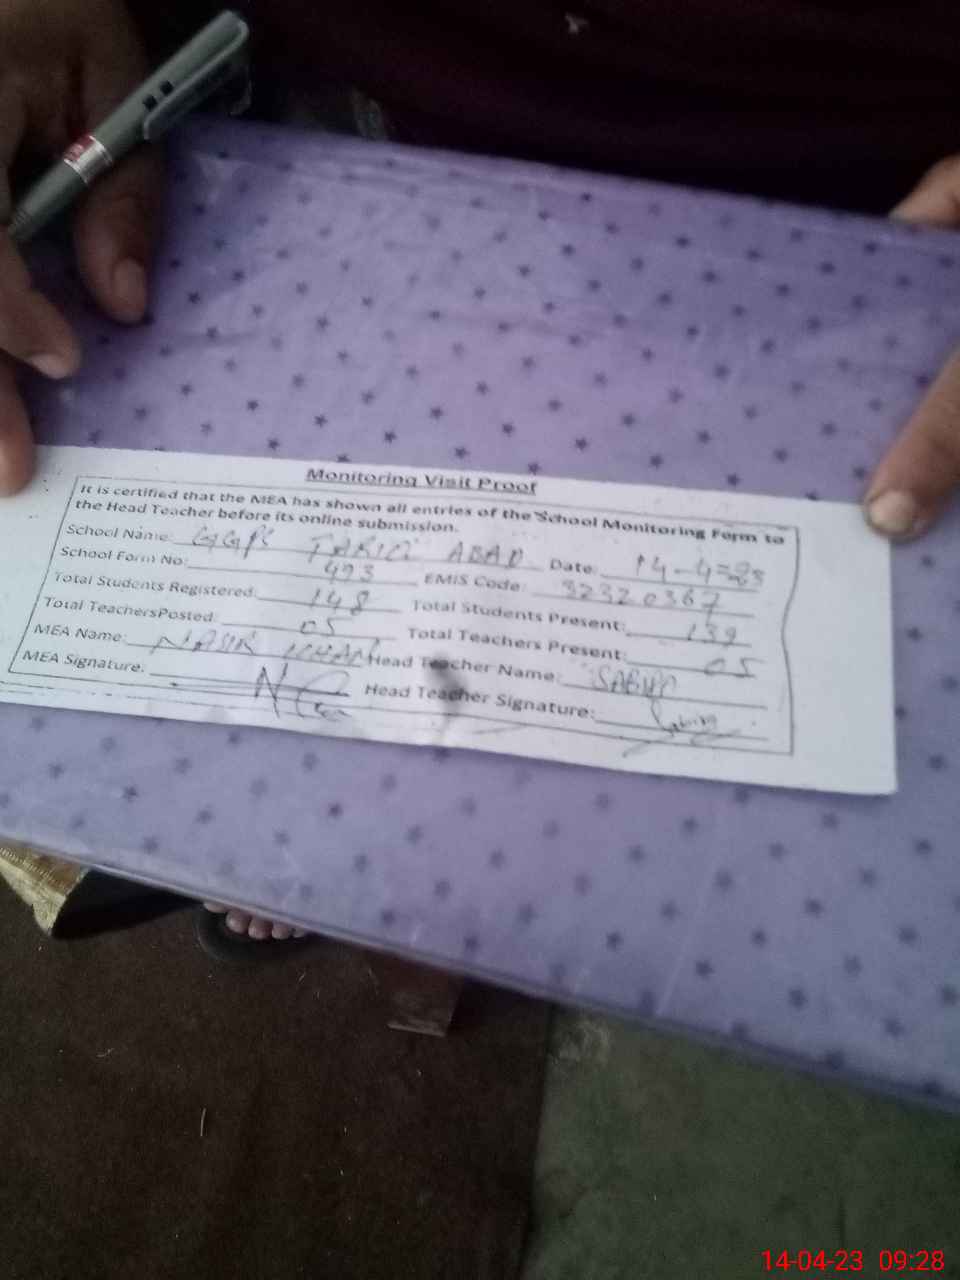 Monitoring Visit Proof
It is certified that the MEA has shown all entries of the School Monitoring Form to
the Head Teacher before its online submission.
School Name: GGPS TARIQ ABAD Date: 14-4-23
School Form No: 493 EMIS Code: 32320367
Total Students Registered: 148 Total Students Present: 139
Total TeachersPosted: 05 Total Teachers Present: 05
MEA Name: NASIR KHAN Head Teacher Name:
MEA Signature: Head Teacher Signature:
14-04-23 09:28